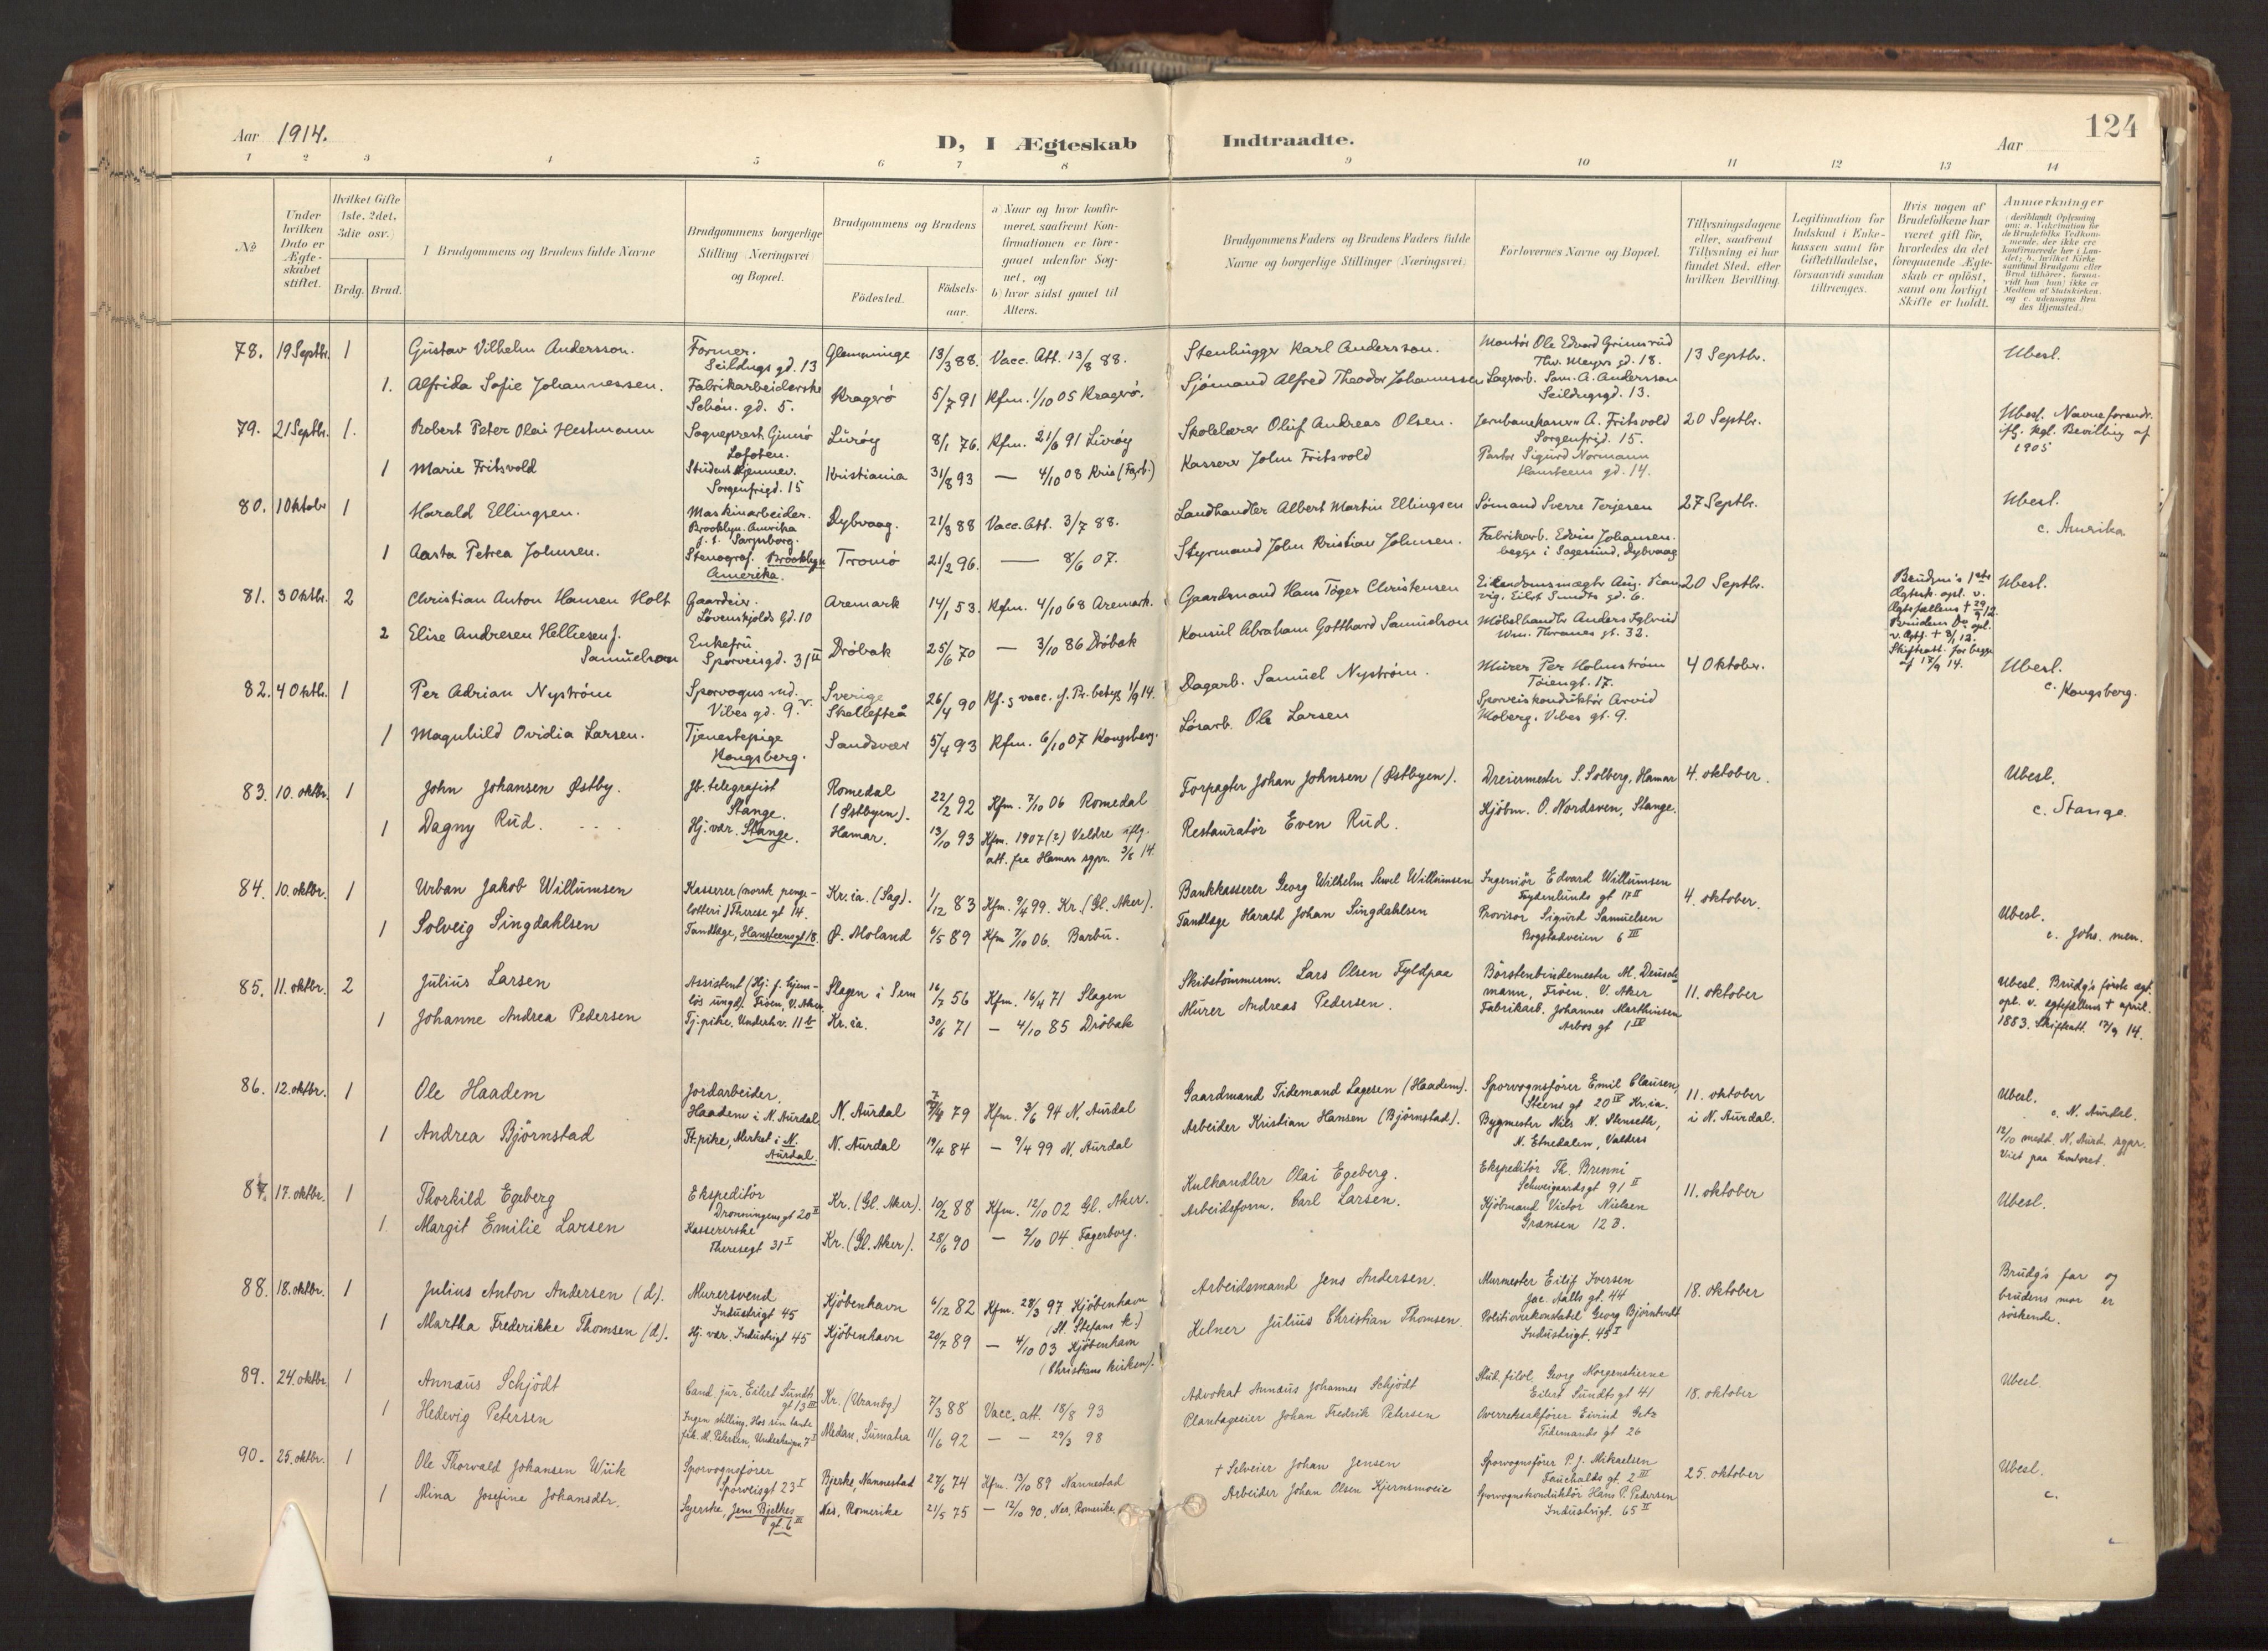 Aar 1914.
D, I Ægteskab Indtraadte.
Aar
124
1 2 3 4 5 6 7 8 9 10 11 12 13 14
№
Under hvilken Dato er Ægteskabet stiftet.
Hvilket Gifte (1ste, 2det, 3die osv.)
Brdg. Brud.
Brudgommens og Brudens fulde Navne
Brudgommens borgerlige Stilling (Næringsvei) og Bopæl.
Brudgommens og Brudens
Födested.
Födselsaar.
a) Naar og hvor konfirmeret, saafremt Konfirmationen er foregaaet udenfor Sognet, og
b) hvor sidst gaaet til Alters.
Brudgommens Faders og Brudens Faders fulde Navne og borgerlige Stillinger (Næringsvei)
Forlovernes Navne og Bopæl.
Tillysningsdagene eller, saafremt Tillysning ei har fundet Sted, efter hvilken Bevilling.
Legitimation for Indskud i Enkekassen samt for Giftetilladelse, forsaavidt saadan tiltrænges.
Hvis nogen af Brudefolkene har været gift för, hvorledes da det foregaaende Ægteskab er oplöst, samt om lovligt Skifte er holdt.
Anmærkninger
78. 19 Septbr. 1 Gustav Vilhelm Andersson. Former. Seildugs gd. 13 Glemminge 13/3 88. Vacc. Att. 13/8 88. Stenhugger Karl Andersson. Montör Ole Edvard Grimsrud Thv. Meyers gd. 18. 13 Septbr. Ubesl.
1. Alfrida Sofie Johannessen. Fabrikarbeiderske Schön. gd. 5. Kragerö 5/7 91 Kfm. 1/10 05 Kragerö. Sjömand Alfred Theodor Johannessen Lagerarb. Sam. A. Andersson Seildugsgd. 13.
79. 21 Septbr. 1. Robert Peter Olai Hestmann Sogneprest Gimsö Lofoten. Luröy 8/1 76. Kfm. 21/6 91 Luröy Skolelærer Oluf Andreas Olsen. Jernbanekaserer A. Fritsvold Sorgenfrigd. 15. 20 Septbr. Ubesl. Navneforandr. iflg. kgl. Bevilling af 1905
1 Marie Fritsvold Student Sorgenfrigd. 15 Kristiania 31/8 93 — 4/10 08 Kria (Fagb.) Kasserer John Fritsvold Pastor Sigurd Normann Hansteens gd. 14.
80. 1 Oktobr 1 Harald Ellingsen. Maskinarbeider. Brooklyn. Amerika f. t. Sarpsborg. Dybvaag. 21/3 88 Vacc. Att. 3/7 88. Landhandler Albert Martin Ellingsen Sömand Sverre Terjesen 27 Septbr. Ubesl. c. Amerika
1 Aasta Petrea Johnsen. Stenograf. Brooklyn Amerika. Tromö 21/2 96. — 8/6 07. Styrmand John Kristian Johnsen. Fabrikarb. Edvin Johansen. begge i Sagesund, Dybvaag
81. 3 Oktbr. 2 Christian Anton Hansen Holt Gaardeier. Lövenskjolds Gd. 10 Aremark 14/1 53. Kfm. 4/10 68 Aremark. Gaardmand Hans Töger Christensen Eiendomsmægler Aug. Ramvig, Eilert Sundts gd. 6. 20 Septbr. Brudgm's 1ste Ægtesk. opl. v. Ægtefællens + 29/9 12. Brudens Do opl. v. Ægtf. + 3/1 12. Skifteatt. for begge af 18/9 14. Ubesl.
2 Elise Andresen Helliesen f. Samuelson Enkefru Sporveisgd. 31 II Dröbak 25/6 70 — 3/10 86 Dröbak Konsul Abraham Gotthard Samuelson Möbelhandler Anders Wm. Thranes gt. 32.
82. 4 Oktbr. 1 Per Adrian Nyström Sporvogns md. Vibes gd. 9. v. Sverige Skellefteå 26/4 90 Kf. & vacc. f. Pr. betyg 1/9 14. Dagarb. Samuel Nyström. Murer Per Holmström Töiengt. 17. 4 Oktober. Ubesl. c. Kongsberg.
1 Magnhild Ovidia Larsen. Tjenestepige Kongsberg. Sandsvær 5/4 93 Kfm. 6/10 07 Kongsberg. Lösarb. Ole Larsen Sporveiskonduktör Arvid Moberg. Vibes gt. 9.
83. 10. oktbr. 1 John Johansen Østby. Jb. telegrafist Stange. Romedal (Østbyen). 22/2 92 Kfm. 7/10 06 Romedal Forpagter Johan Johnsen (Østbyen). Dreiermester S. Solberg, Hamar 4. oktober. Ubesl. c. Stange.
1 Dagny Rud. Hj. vær. Stange. Hamar. 13/10 93 Kfm. 1907 (?) Veldre iflg. att. fra Hamar sgpr. 3/8 14. Restauratör Even Rud. Kjöbm. O. Nordsven, Stange.
84. 10. oktbr. 1 Urban Jakob Willumsen Kasserer (norsk pengelotteri) Therese gt 14. Kr.ia. (Sag). 1/12 83 Kfm. 9/4 99. Kr. (Gl. Aker). Bankkasserer Georg Wilhelm Willumsen Ingeniör Edvard Willumsen Frydenlunds gt 17 II 4. oktober. Ubesl. c. Johs. men.
1 Solveig Singdahlsen Tandlæge, Hansteensgt 18. Ø. Moland 6/5 89 Kfm 7/10 06. Barbu. Tandlæge Harald Johan Singdahlsen Provisor Sigurd Samuelsen Bogstadveien 6 III
85. 11. oktbr. 2 Julius Larsen Assistent (Hj. f. hjemlös ungd). Fröen, V. Aker Slagen i Sem 16/7 56 Kfm. 16/4 71 Slagen Skibstömmerm. Lars Olsen Fyldpaa Börstenbindermester M. Deuschmann, Fröen. V. Aker 11. oktober Ubesl. Brudg's förste egt. opl. v. egtefellens + april. 1883. Skifteatt. 17/9 14.
1 Johanne Andrea Pedersen Tj. pike, Underh.v. 11 b Kr.ia. 30/6 71 — 4/10 85 Dröbak Murer Andreas Pedersen. Fabrikarb. Johannes Marthinsen Arbos gt 1 IV
86. 12. oktbr. 1 Ole Haadem Jordarbeider, Haadem i N. Aurdal N. Aurdal 79 Kfm. 3/6 94 N. Aurdal Gaardmand Tidemand Lagesen (Haadem). Sporvognsförer Emil Clausen, Steens gt 20 IV Kr.ia. 11. oktober i N. Aurdal. Ubesl. c. N. Aurdal.
1 Andrea Björnstad St. pike, Merket i N. Aurdal. N. Aurdal 19/4 84 — 9/4 99 N. Aurdal Arbeider Kristian Hansen (Björnstad). Bygmester Nils N. Stenseth, N. Etnedalen, Valdres 12/10 medd. N. Aurd. sgpr. Viet paa kontoret.
87. 17. oktbr. 1 Thorkild Egeberg Ekspeditör Dronningens gt 20 II Kr. (Gl. Aker). 10/2 88 Kfm. 12/10 02 Gl. Aker. Kulhandler Olai Egeberg. Ekspeditör Th. Brenni Schweigaardsgt 91 II 11. oktober Ubesl.
1. Margit Emilie Larsen Kassererske Theresegt 31 I Kr. (Gl. Aker). 28/6 90 — 2/10 04 Fagerborg. Arbeidsform. Carl Larsen. Kjöbmand Victor Nielsen Grænsen 12 3.
88. 18. oktbr. 1 Julius Anton Andersen (d). Murersvend Industrigt 45 Kjöbenhavn 6/12 82 Kfm. 28/3 97 Kjöbenhavn (St. Stefans k.) Arbeidsmand Jens Andersen. Murmester Eilif Iversen Jac. Aalls gt. 44 18. oktober Brudg's far og brudens mor er söskende.
1 Martha Frederikke Thomsen (d). Hj. vær. Industrigt 45 Kjöbenhavn 20/7 89 — 4/10 03 Kjöbenhavn (Christians kirken). Kelner Julius Christian Thomsen. Politioverkonstabel Georg Björntvedt Industrigt. 45 I
89. 24. oktbr 1 Annæus Schjödt Cand. jur. Eilert Sundts gt 13 III Kr. (Uranbg) 7/3 88 Vacc. att. 18/8 93 Advokat Annæus Johannes Schjödt Stud. filol. Georg Morgenstierne Eilert Sundts gt 41 18. oktober Ubesl.
1 Hedevig Petersen Ingen stilling. Hos sin tante frk. M. Petersen, Underhaugsv 7 I Medan, Sumatra 11/6 92 — — 29/3 98 Plantageeier Johan Fredrik Petersen Overretssakförer Eivind Getz Tidemands gt 26
90. 25. oktbr. 1 Ole Thorvald Johansen Wiik Sporvognsförer Sporveisgt 23 I Bjerke, Nannestad 27/6 74 Kfm. 13/10 89 Nannestad + Selveier Johan Jensen Sporvognsförer P. J. Mikaelsen Fauchalds gt. 2 III 25. oktober Ubesl.
1 Mina Josefine Johansdtr. Syerske, Jens Bjelkes gt. 6 III Nes, Romerike 21/5 75 — 12/10 90. Nes, Romerike Arbeider Johan Olsen Kjernsmoeie Sporvognskonduktör Hans P. Pedersen Industrigt. 65 II c.